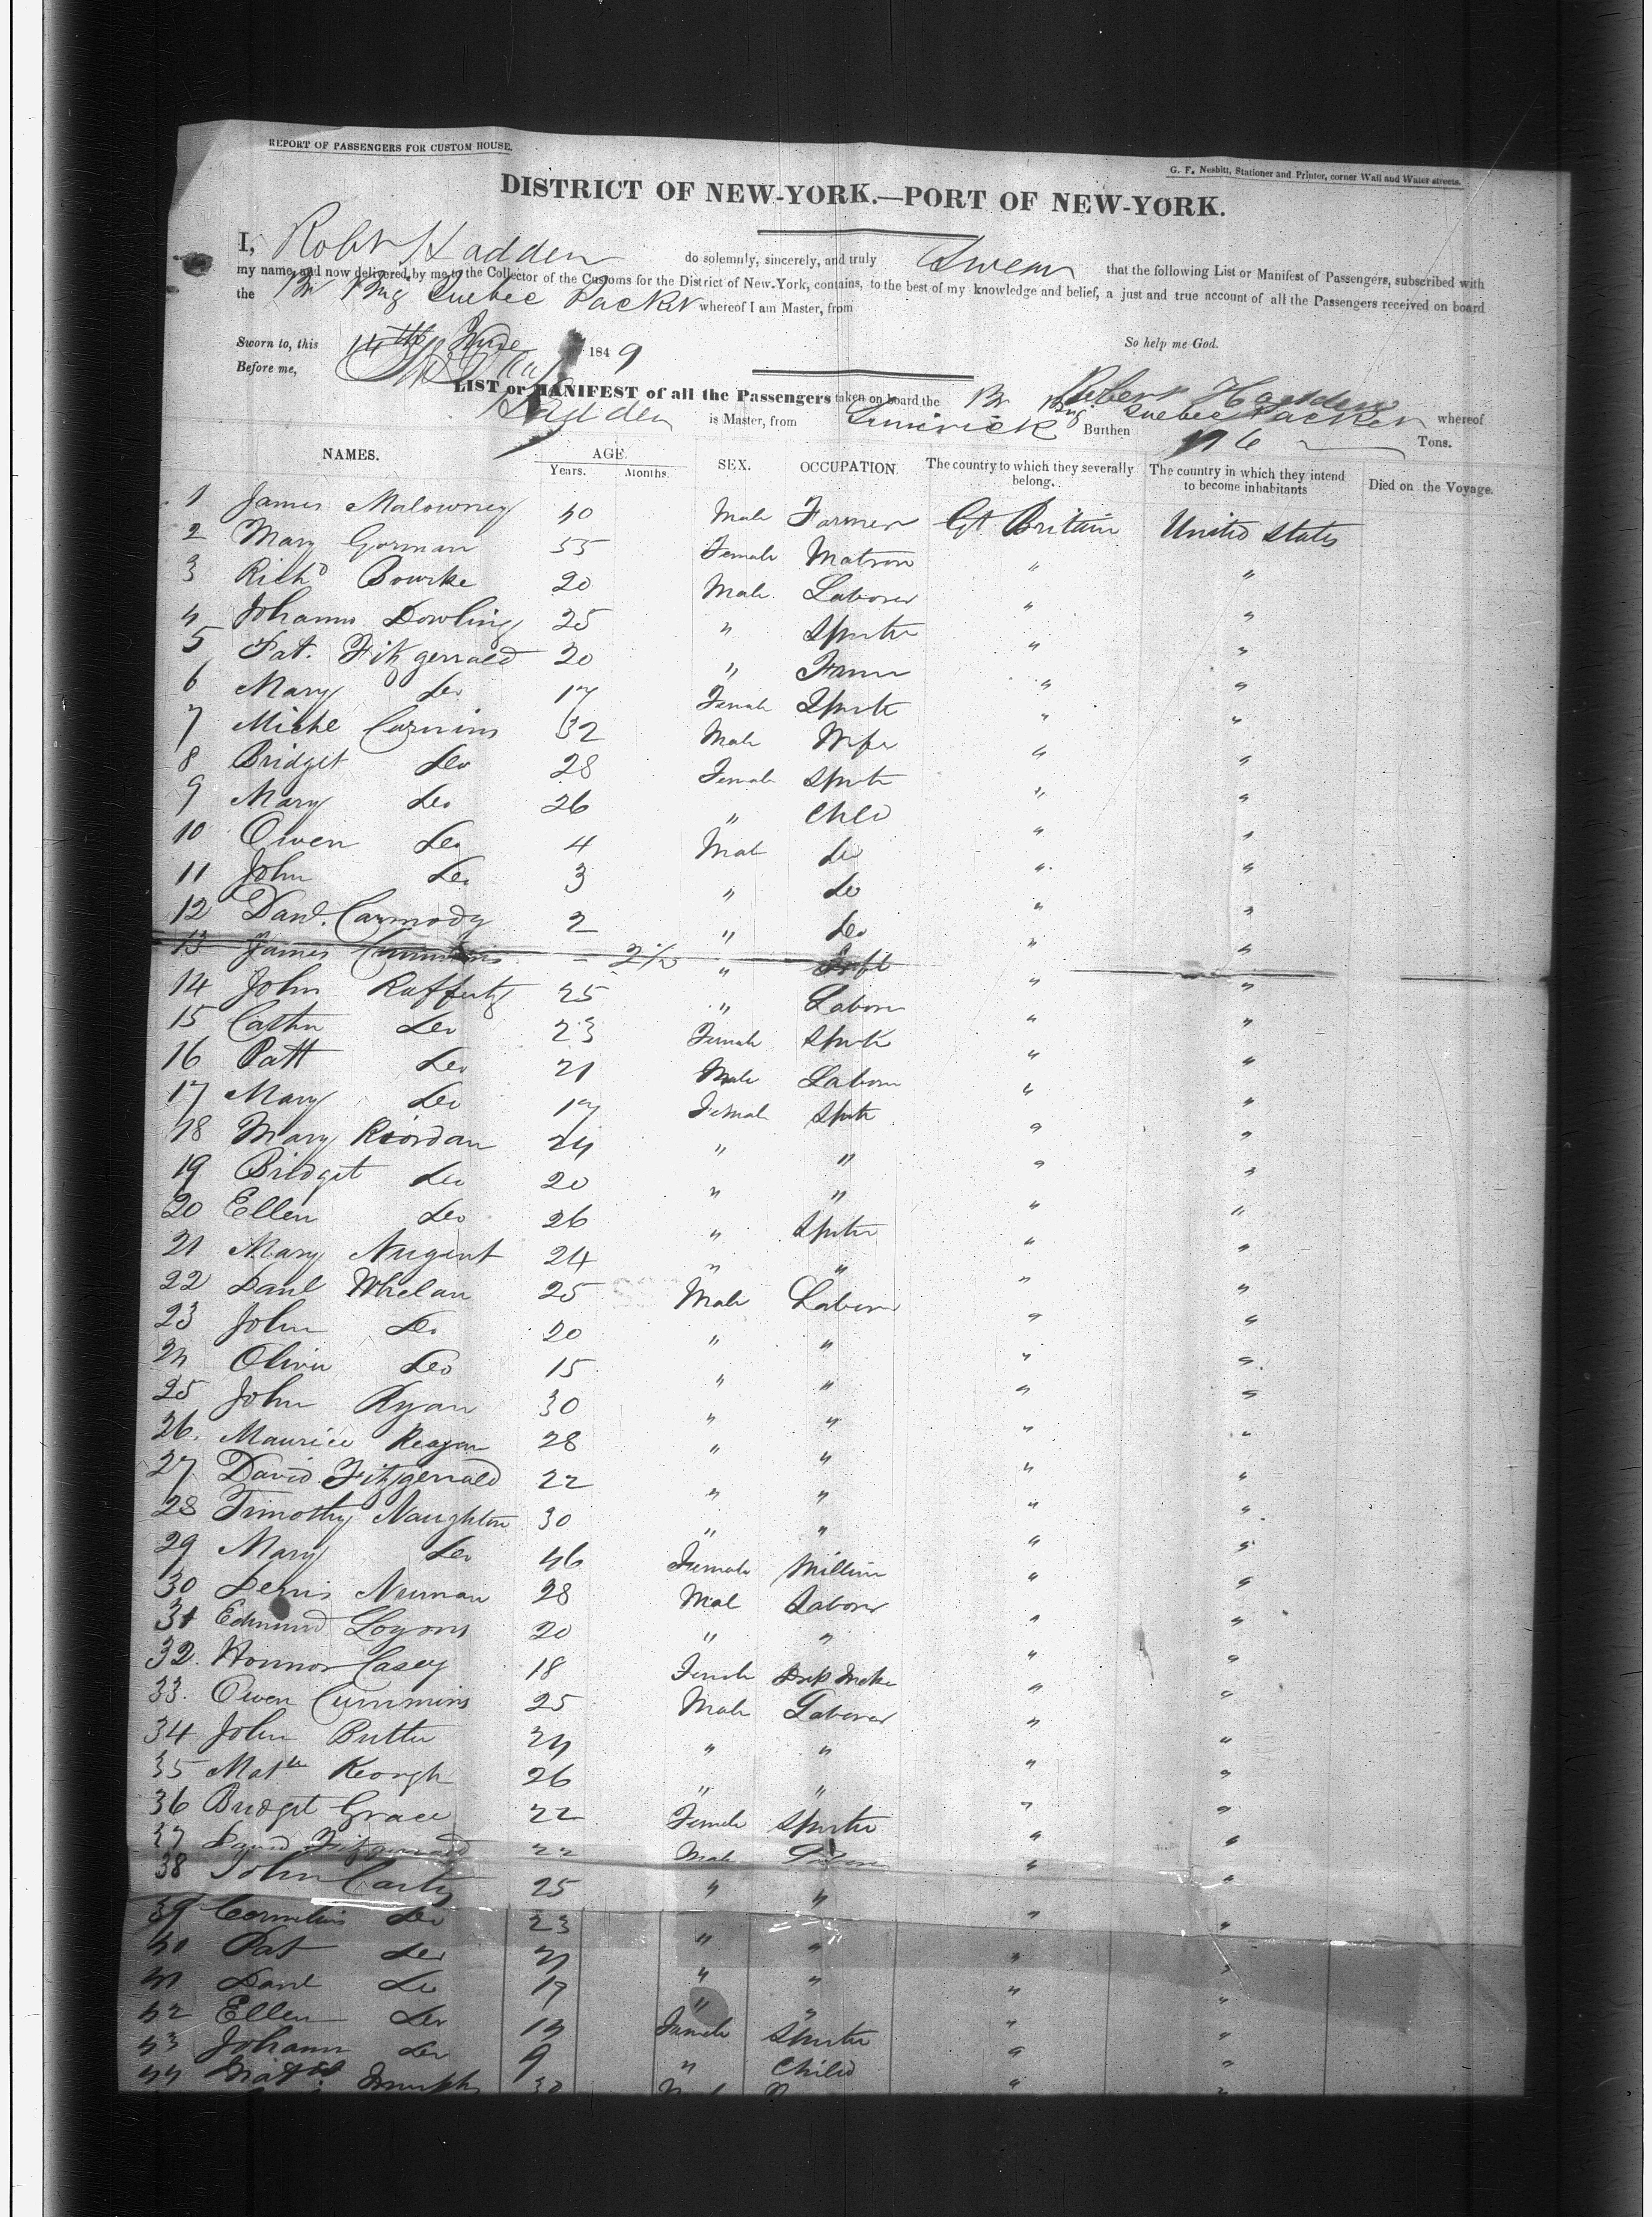 REPORT OF PASSENGERS FOR CUSTOM HOUSE.
G. F. Nesbitt, Stationer and Printer, corner Wall and Water streets.
DISTRICT OF NEW-YORK.—PORT OF NEW-YORK.
I, Robt Hadden do solemnly, sincerely, and truly Swear that the following List or Manifest of Passengers, subscribed with
my name, and now delivered by me to the Collector of the Customs for the District of New-York, contains, to the best of my knowledge and belief, a just and true account of all the Passengers received on board
the Br Brig Quebec Packet whereof I am Master, from
Sworn to, this 14th June 1849 So help me God.
Before me, Robert Hadden
LIST or MANIFEST of all the Passengers taken on board the Br Brig Quebec Packet whereof
Hadden is Master, from Limerick Burthen 176 Tons.
NAMES. AGE. SEX. OCCUPATION. The country to which they severally belong. The country in which they intend to become inhabitants Died on the Voyage.
Years. Months.
1 James Malowney 50 Male Farmer Gt Britain United States
2 Mary Gorman 55 Female Matron " "
3 Richd Bourke 20 Male Laborer " "
4 Johanna Dowling 25 " Spinster " "
5 Pat. Fitzgerrald 20 " Farmer " "
6 Mary Do 17 Female Spinstr " "
7 Michl 32 Male Wife " "
8 Bridget Do 28 Female Spinstr " "
9 Mary Do 26 " Child " "
10 Owen Do 4 Male Do " "
11 John Do 3 " Do " "
12 Danl. Carmody 2 " Do " "
13 James Cummins - 2½ " Inft " "
14 John Rafferty 25 " Laborer " "
15 Cathn Do 23 Female Spinstr " "
16 Patt Do 21 Male Laborer " "
17 Mary Do 17 Female Spinstr " "
18 Mary Riordan 24 " " " "
19 Bridget Do 20 " " " "
20 Ellen Do 26 " Spinster " "
21 Mary Nugent 24 " " " "
22 Danl Whelan 25 Male Laborer " "
23 John Do 20 " " " "
24 Oliver Do 15 " " " "
25 John Ryan 30 " " " "
26. Maurice Reagan 28 " " " "
27 David Fitzgerrald 22 " " " "
28 Timothy Naughton 30 " " " "
29 Mary Do 46 Female Milliner " "
30 Dennis Nunan 28 Male Laborer " "
31 Edmund Loyons 20 " " " "
32. Honnor Casey 18 Female Drss Maker " "
33. Owen Cummins 25 Male Laborer " "
34 John Butler 24 " " " "
35 Matw Keough 26 " " " "
36 Bridget Grace 22 Female Spinster " "
37 David Fitzgerrald 22 Male Laborer " "
38 John Carty 25 " " " "
39 Cornelius Do 23 " " " "
40 Pat Do 21 " " " "
41 Danl Do 19 " " " "
42 Ellen Do 14 Female Spinster " "
43 Johanna Do 9 " Child " "
44 Murphy 30 " "